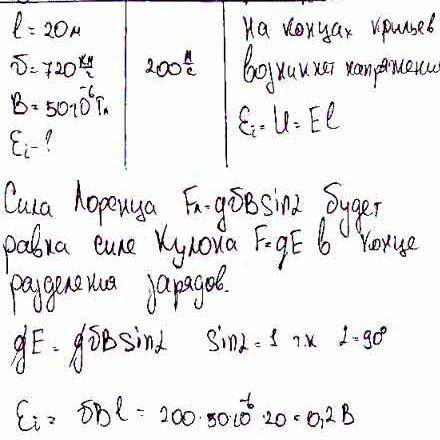 l = 20 м
υ = 720 км/ч
200 м/с
B = 50·10⁻⁶ Тл
Ɛi - ?
на концах крыльев
возникнет напряжение
Ɛi = U = El
Сила Лоренца Fл = qυBsinα будет
равна силе Кулона F = qE в конце
разделения зарядов.
qE = qυBsinα sinα = 1 т.к α = 90°
Ɛi = υBl = 200·50·10⁻⁶·20 = 0,2 В